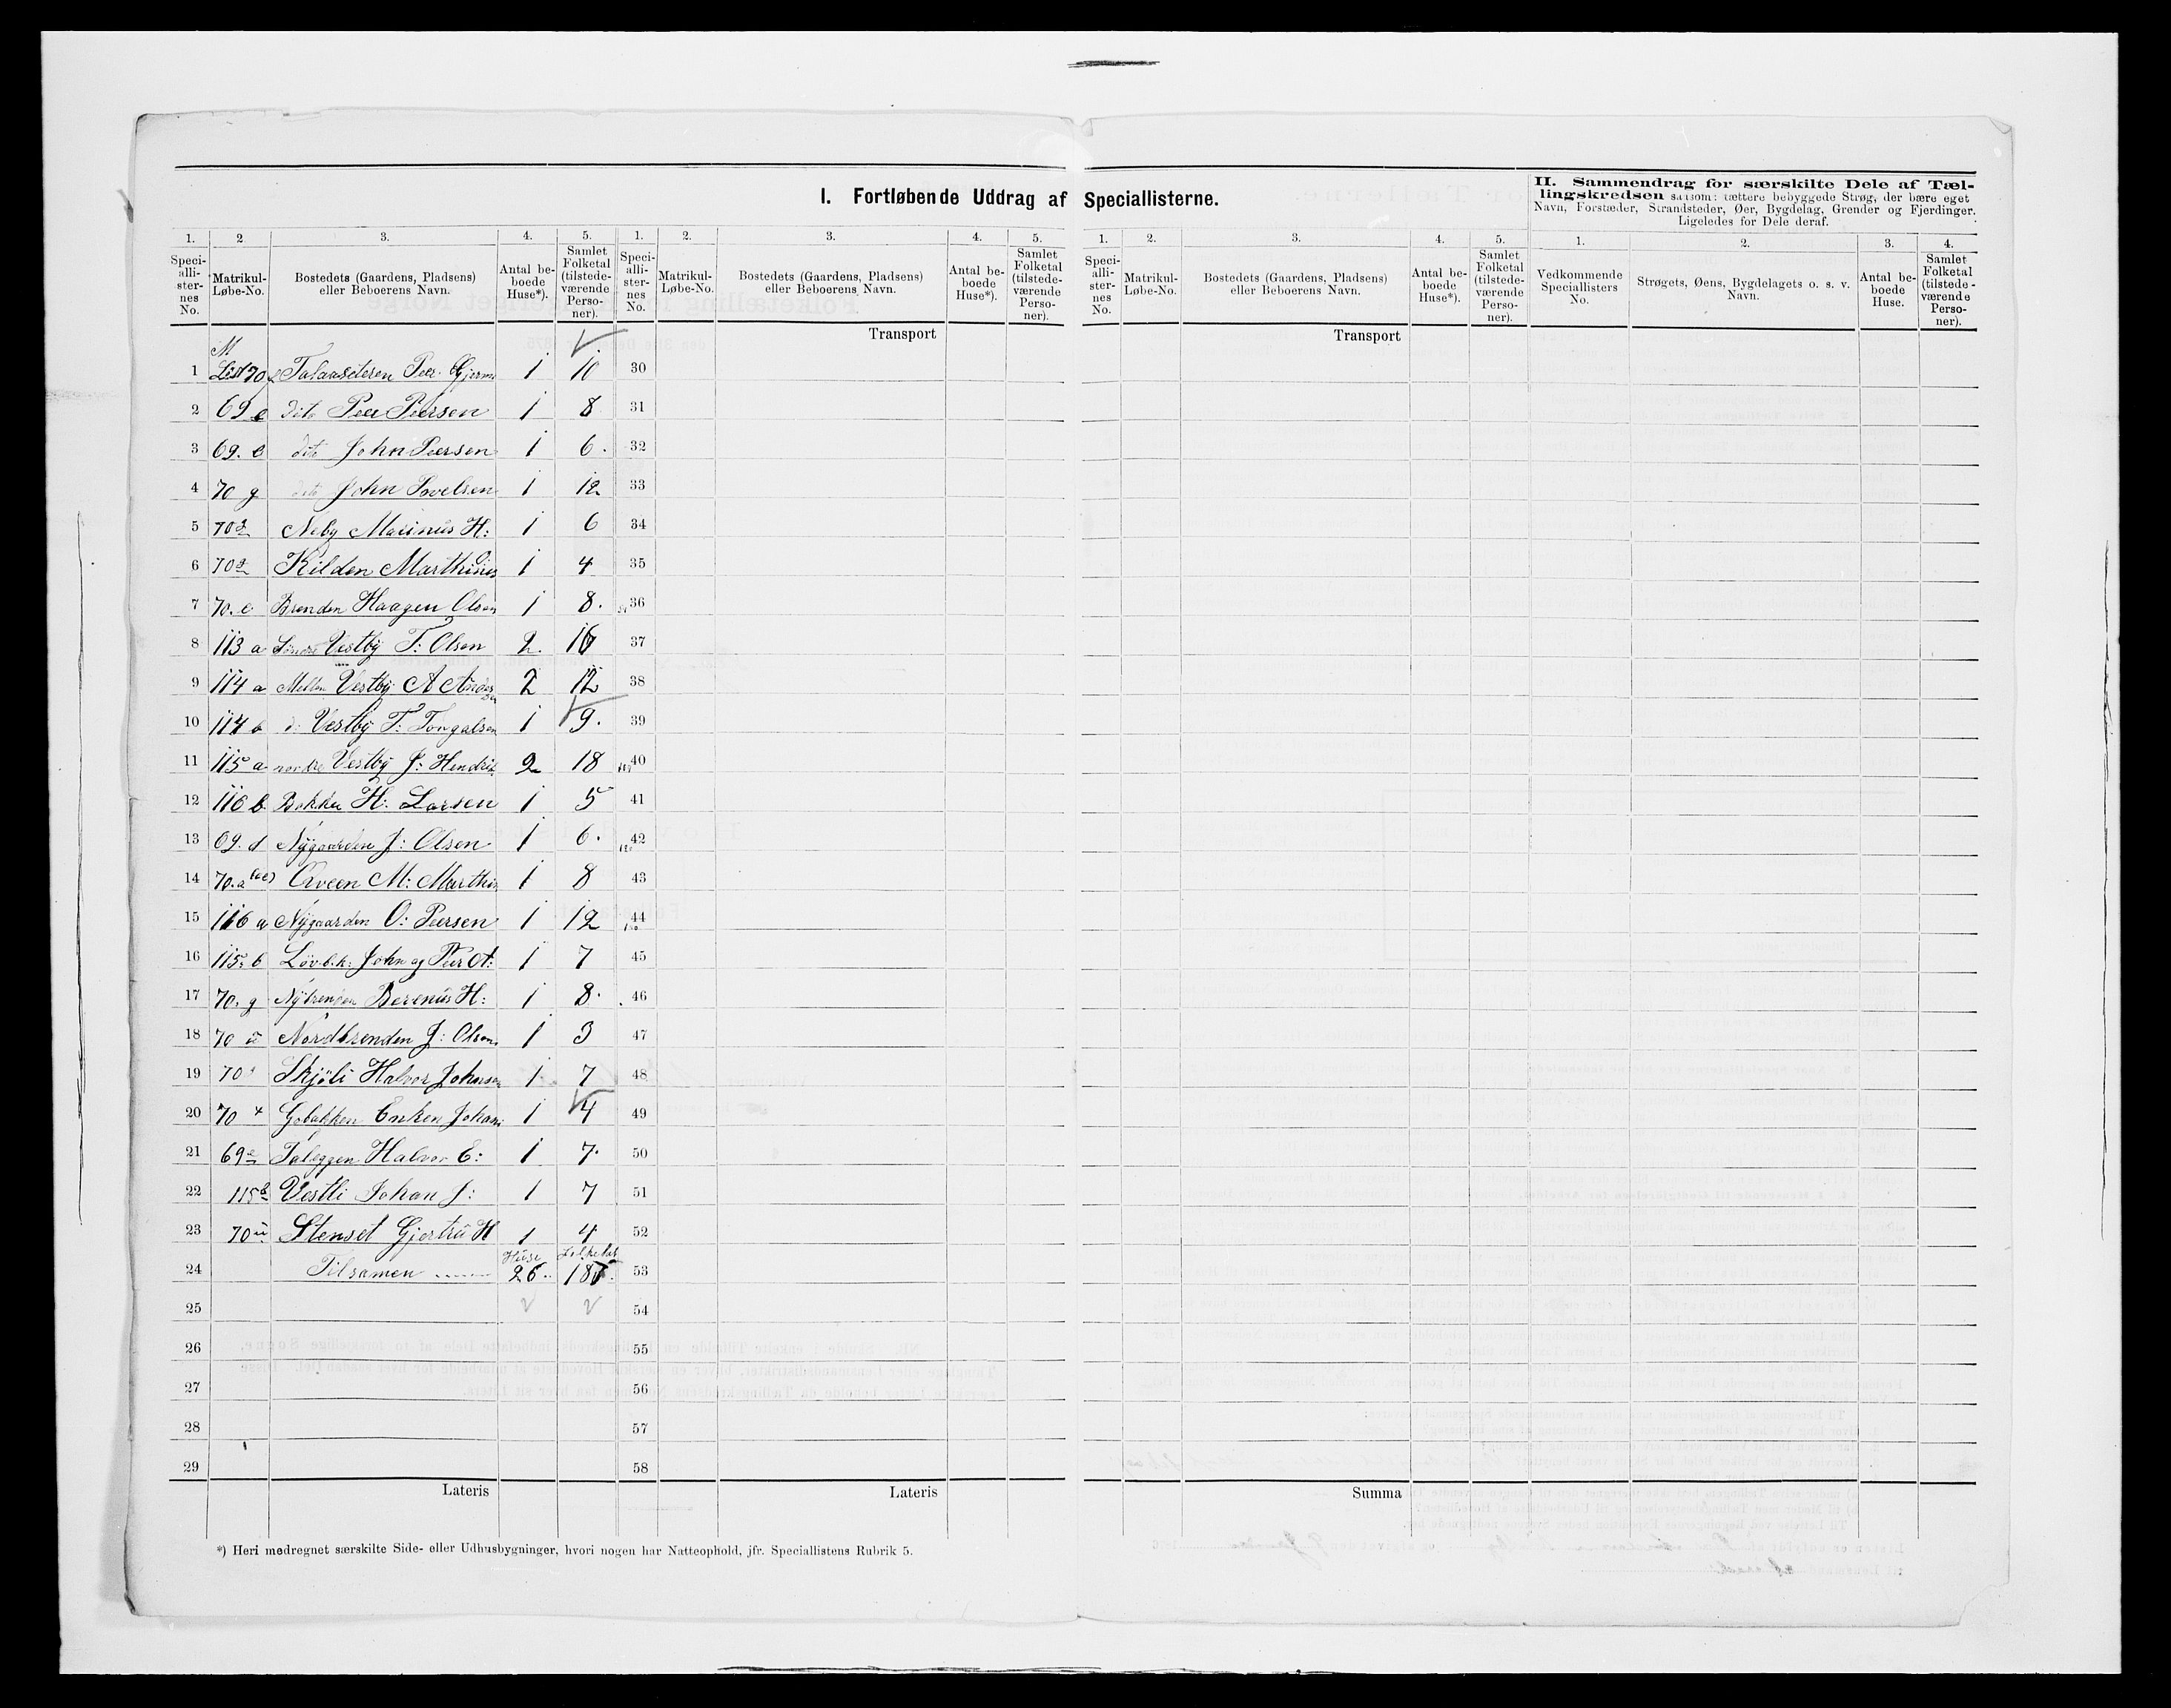 I. Fortløbende Uddrag af Speciallisterne.
II. Sammendrag for særskilte Dele af Tæl-
lingskredsen saasom: tættere bebyggede Strøg, der bære eget
Navn, Forstæder, Strandsteder, Øer, Bygdelag, Grender og Fjerdinger.
Ligeledes for Dele deraf.
1. 2 3. 4. 5. 1. 2. 3. 4. 5. 1. 2. 3. 4. 5. 1. 2. 3. 4.
Speci-alli-ster-nes No. Matrikul-Løbe-No. Bostedets (Gaardens, Pladsens) eller Beboerens Navn. Antal be-boede Huse*). Samlet Folketal (tilstede-værende Perso-ner).
Speci-alli-ster-nes No. Matrikul-Løbe-No. Bostedets (Gaardens, Pladsens) eller Beboerens Navn. Antal be-boede Huse*). Samlet Folketal (tilstede-værende Perso-ner).
Speci-alli-ster-nes No. Matrikul-Løbe-No. Bostedets (Gaardens, Pladsens) eller Beboerens Navn. Antal be-boede Huse*). Samlet Folketal (tilstede-værende Perso-ner).
Vedkommende Speciallisters No. Strøgets, Øens, Bygdelagets o. s. v. Navn. Antal be-boede Huse. Samlet Folketal (tilstede-værende Perso-ner).
Transport Transport
M
1 70 Peer 1 10 30
2 69 e dito Peer Peersen 1 8 31
3 69. e dito John Peersen 1 6. 32
4 70 g dito John Povelsen 1 12 33
5 70 Neby Marinus H: 1 6 34
6 70 Kilden Marthinus 1 4 35
7 70. e Brenden Haagen Olsen 1 8. 36
8 113 a Søndre Vestby T: Olsen 2. 37
9 114 a Mellem Vestby A Anders 2 12 38
10 114 b d: Vestby T: 1 9. 39
11 115 a nordre Vestby J: Hendrik 2 18 40
12 116 b. Bakken H: Larsen 1 5 41
13 69. d Nygaarden J: Olsen 1 6. 42
14 70. a M: Marthin 1 8 43
15 116 a Nygaarden O: Peersen 1 12 44
16 115. b John og Peer A: 1 7 45
17 70. g Nybrenden Berenus H: 1 8. 46
18 70 Nordbrenden J: Olsen 1 3 47
19 70 Skjöli Halvor Johnsen 1 7 48
20 70 Enken Johan 1 4 49
21 69 e Halvor E: 1 7. 50
22 115 Vestli Johan J: 1 7 51
23 70 Stenset Gjertru H 1 4 52
Huse Folketal
24 Tilsamen 26. 53
25 54
26 55
27 56
28 57
29 58
Lateris Lateris Summa
*) Heri medregnet særskilte Side- eller Udhusbygninger, hvori nogen har Natteophold, jfr. Speciallistens Rubrik 5.